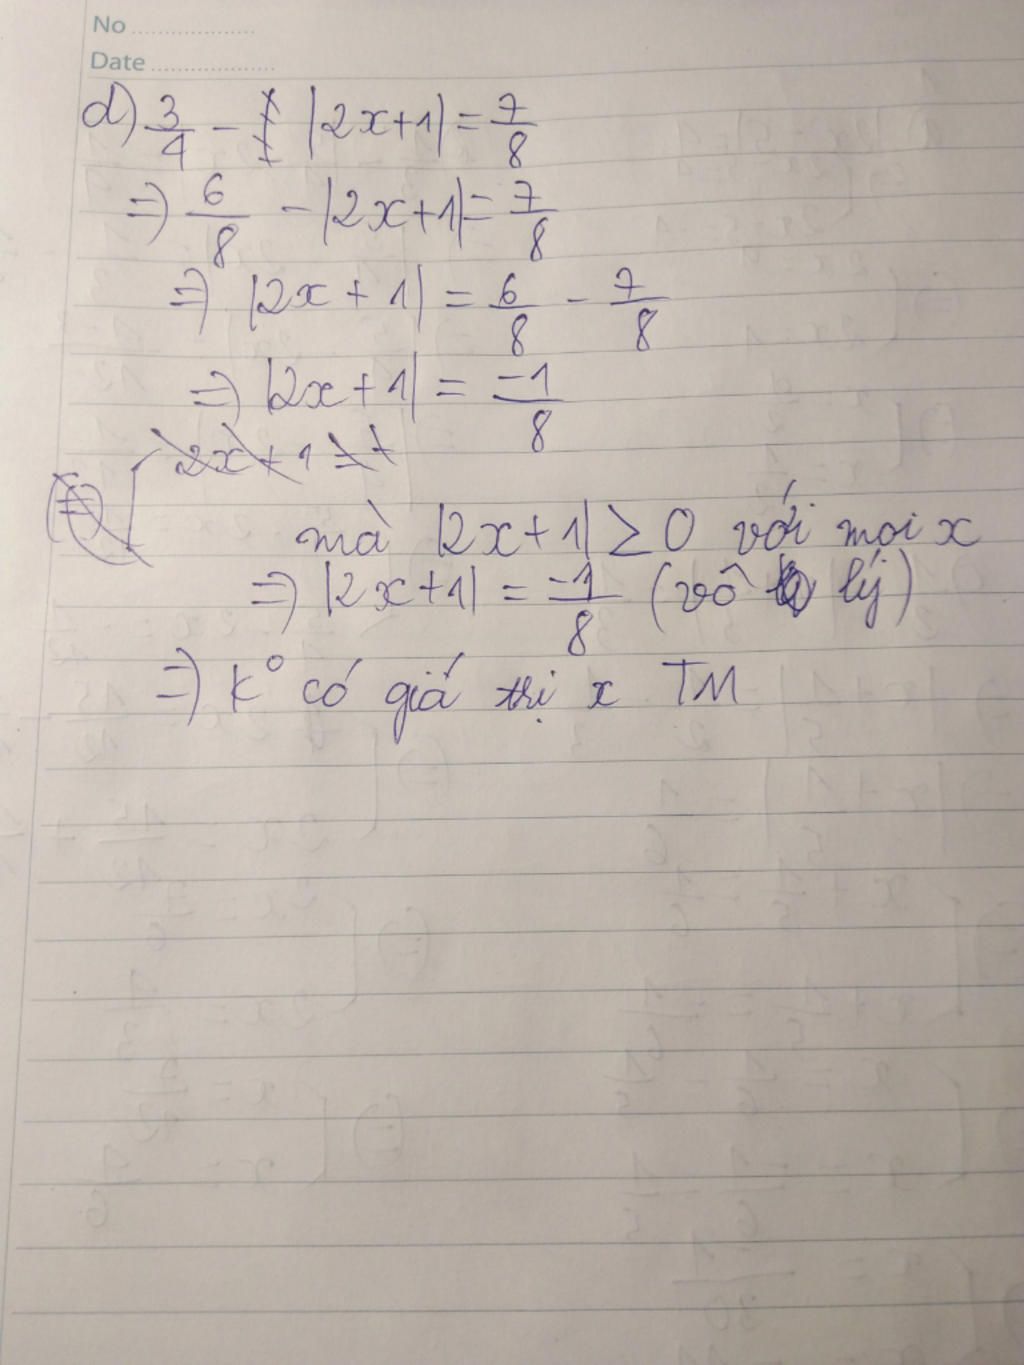 No ....................
Date ....................
d) 3/4 - |2x+1| = 7/8
=> 6/8 - |2x+1| = 7/8
=> |2x + 1| = 6/8 - 7/8
=> |2x + 1| = -1/8
2x + 1 =
mà |2x+1| ≥ 0 với moi x
=> |2x+1| = -1/8 (vô lý)
=> K° có giá trị x TM